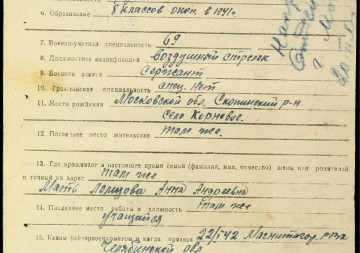 6. Образование 8 классов окон. в 1941 г.
7. Военноучетная специальность 69
8. Должностная квалификация Воздушный стрелок
9. Воинское звание Сержант
10. Гражданская специальность спец. нет
11. Место рождения Московской обл. Скопинский р-н
село Корневое.
12. Последнее место жительства там же.
13. Где проживает в настоящее время семья (фамилия, имя, отчество) жены или родителей
и точный их адрес там же
Мать Анна Андреевна
14. Последнее место работы и должность там же
учащийся
15. Каким райгорвоенкоматом и когда призван 22/ 42 Магнитогор. РВК
Челябинской обл.